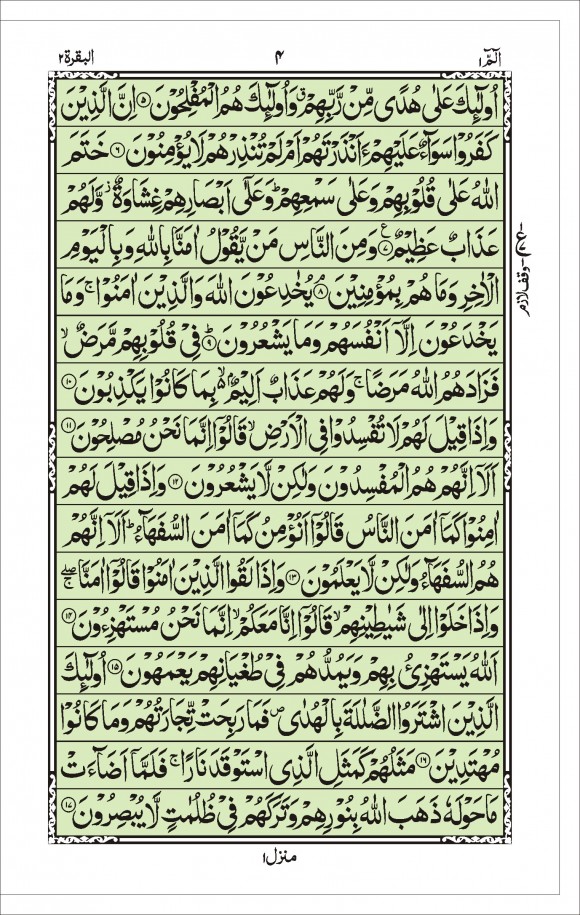 الٓمّٓ ۱
۴
البقرة ۲
اُولٰٓئِكَ عَلٰى هُدًى مِّنْ رَّبِّهِمْ ۗ وَاُولٰٓئِكَ هُمُ الْمُفْلِحُوْنَ ۝۵ اِنَّ الَّذِيْنَ
كَفَرُوْا سَوَآءٌ عَلَيْهِمْ ءَاَنْذَرْتَهُمْ اَمْ لَمْ تُنْذِرْهُمْ لَا يُؤْمِنُوْنَ ۝۶ خَتَمَ
اللّٰهُ عَلٰى قُلُوْبِهِمْ وَعَلٰى سَمْعِهِمْ ؕ وَعَلٰٓى اَبْصَارِهِمْ غِشَاوَةٌ ؗ وَّلَهُمْ
عَذَابٌ عَظِيْمٌ ۝۷ ع وَمِنَ النَّاسِ مَنْ يَّقُوْلُ اٰمَنَّا بِاللّٰهِ وَبِالْيَوْمِ
الْاٰخِرِ وَمَا هُمْ بِمُؤْمِنِيْنَ ۝۸ ۘ يُخٰدِعُوْنَ اللّٰهَ وَالَّذِيْنَ اٰمَنُوْا ۚ وَمَا
يَخْدَعُوْنَ اِلَّاۤ اَنْفُسَهُمْ وَمَا يَشْعُرُوْنَ ۝۹ ؕ فِيْ قُلُوْبِهِمْ مَّرَضٌ ۙ
فَزَادَهُمُ اللّٰهُ مَرَضًا ۚ وَلَهُمْ عَذَابٌ اَلِيْمٌۢ ۙ۬ بِمَا كَانُوْا يَكْذِبُوْنَ ۝۱۰
وَاِذَا قِيْلَ لَهُمْ لَا تُفْسِدُوْا فِى الْاَرْضِ ۙ قَالُوْۤا اِنَّمَا نَحْنُ مُصْلِحُوْنَ ۝۱۱
اَلَاۤ اِنَّهُمْ هُمُ الْمُفْسِدُوْنَ وَلٰكِنْ لَّا يَشْعُرُوْنَ ۝۱۲ وَاِذَا قِيْلَ لَهُمْ
اٰمِنُوْا كَمَاۤ اٰمَنَ النَّاسُ قَالُوْۤا اَنُؤْمِنُ كَمَاۤ اٰمَنَ السُّفَهَآءُ ؕ اَلَاۤ اِنَّهُمْ
هُمُ السُّفَهَآءُ وَلٰكِنْ لَّا يَعْلَمُوْنَ ۝۱۳ وَاِذَا لَقُوا الَّذِيْنَ اٰمَنُوْا قَالُوْۤا اٰمَنَّا ۖۚ
وَاِذَا خَلَوْا اِلٰى شَيٰطِيْنِهِمْ ۙ قَالُوْۤا اِنَّا مَعَكُمْ ۙ اِنَّمَا نَحْنُ مُسْتَهْزِءُوْنَ ۝۱۴
اَللّٰهُ يَسْتَهْزِئُ بِهِمْ وَيَمُدُّهُمْ فِيْ طُغْيَانِهِمْ يَعْمَهُوْنَ ۝۱۵ اُولٰٓئِكَ
الَّذِيْنَ اشْتَرَوُا الضَّلٰلَةَ بِالْهُدٰى ۪ فَمَا رَبِحَتْ تِّجَارَتُهُمْ وَمَا كَانُوْا
مُهْتَدِيْنَ ۝۱۶ مَثَلُهُمْ كَمَثَلِ الَّذِى اسْتَوْقَدَ نَارًا ۚ فَلَمَّاۤ اَضَآءَتْ
مَا حَوْلَهٗ ذَهَبَ اللّٰهُ بِنُوْرِهِمْ وَتَرَكَهُمْ فِيْ ظُلُمٰتٍ لَّا يُبْصِرُوْنَ ۝۱۷
وقف لازم
منزل ۱